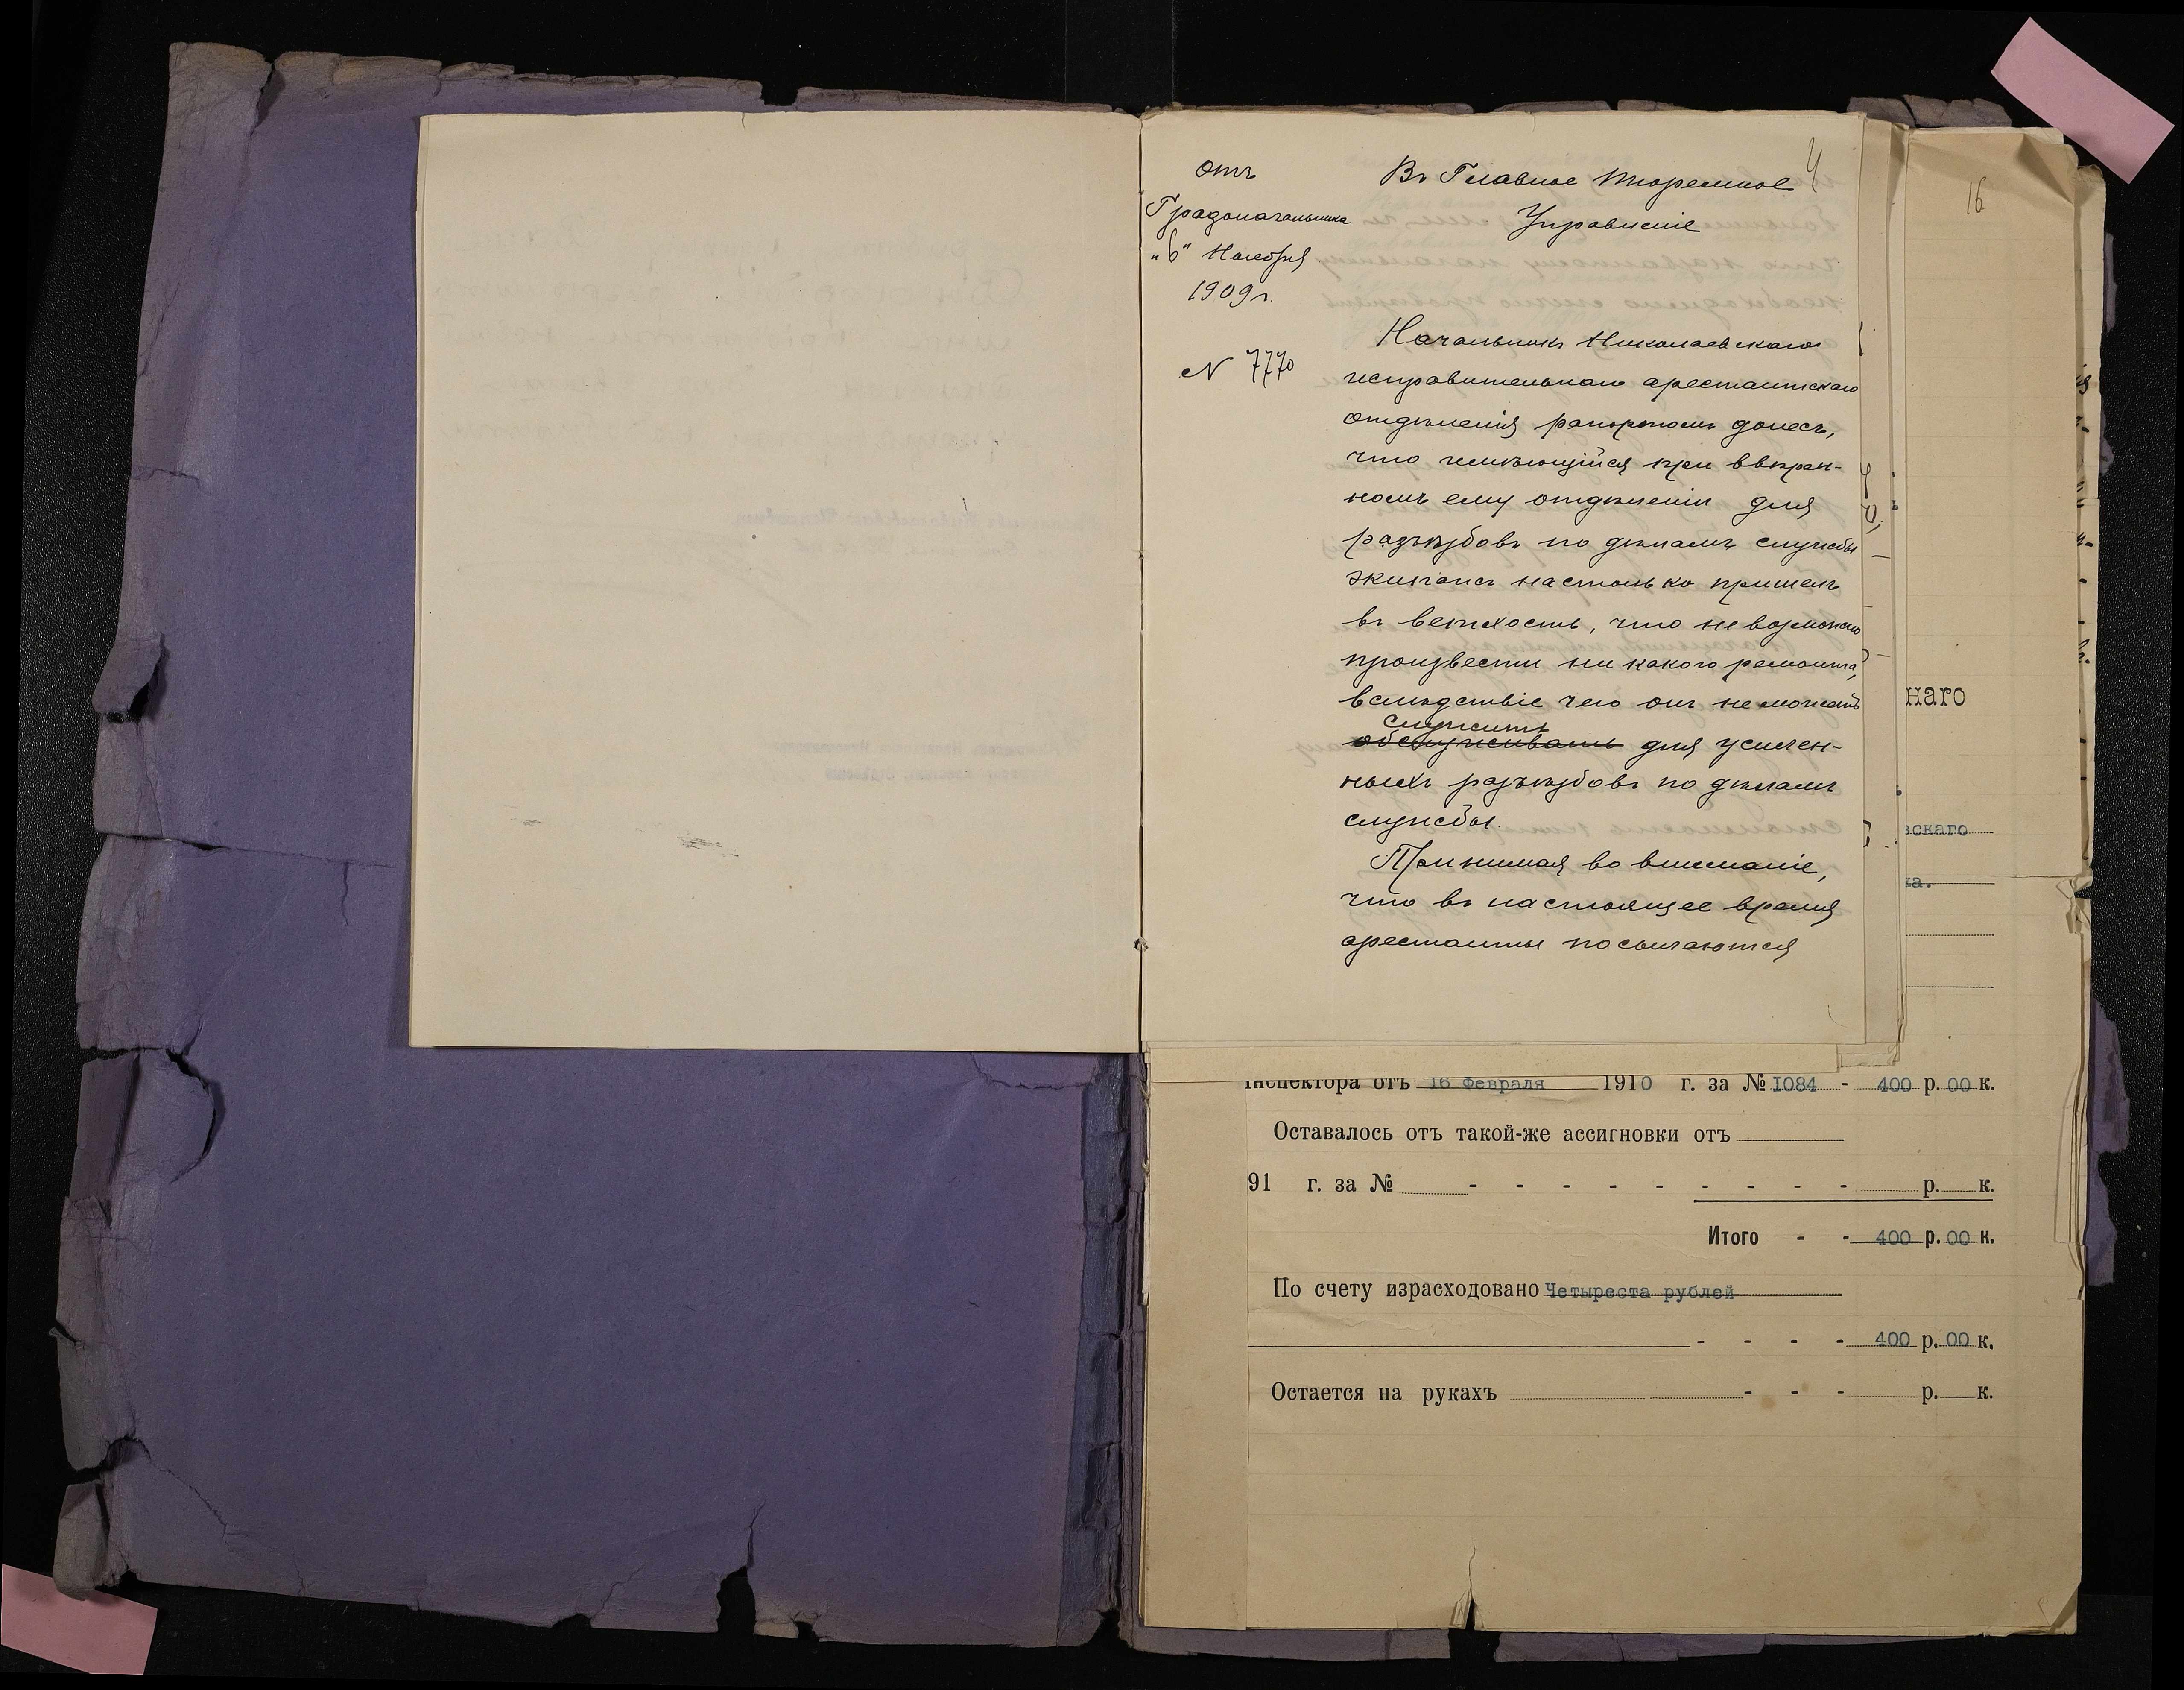 отъ
Градоначальника
„6" Ноября
1909 г.
N 7770
4
Въ Главное Тюремное
Управленіе
Начальникъ Николаевскаго
исправительнаго арестантскаго
отдѣленія рапортомъ донесъ,
что имѣющійся при ввѣрен-
номъ ему отдѣленіи для
разъѣздовъ по дѣламъ службы
экипажъ настолько пришелъ
въ ветхость, что не возможно
произвести ни какого ремонта,
вслѣдствіе чего онъ не можетъ
служить
обслуживать для усилен-
ныхъ разъѣздовъ по дѣламъ
службы.
Принимая во вниманіе,
что въ настоящее время
арестанты посылаются
16
наго
вскаго
ка.
Инспектора отъ 16 Февраля 1910 г. за № I084 - 400 р. 00 к.
Оставалось отъ такой-же ассигновки отъ
91 г. за № - - - - - - - - - р. к.
Итого - - 400 р. 00 к.
По счету израсходовано Четыреста рублей
- - - - 400 р. 00 к.
Остается на рукахъ - - - р. к.